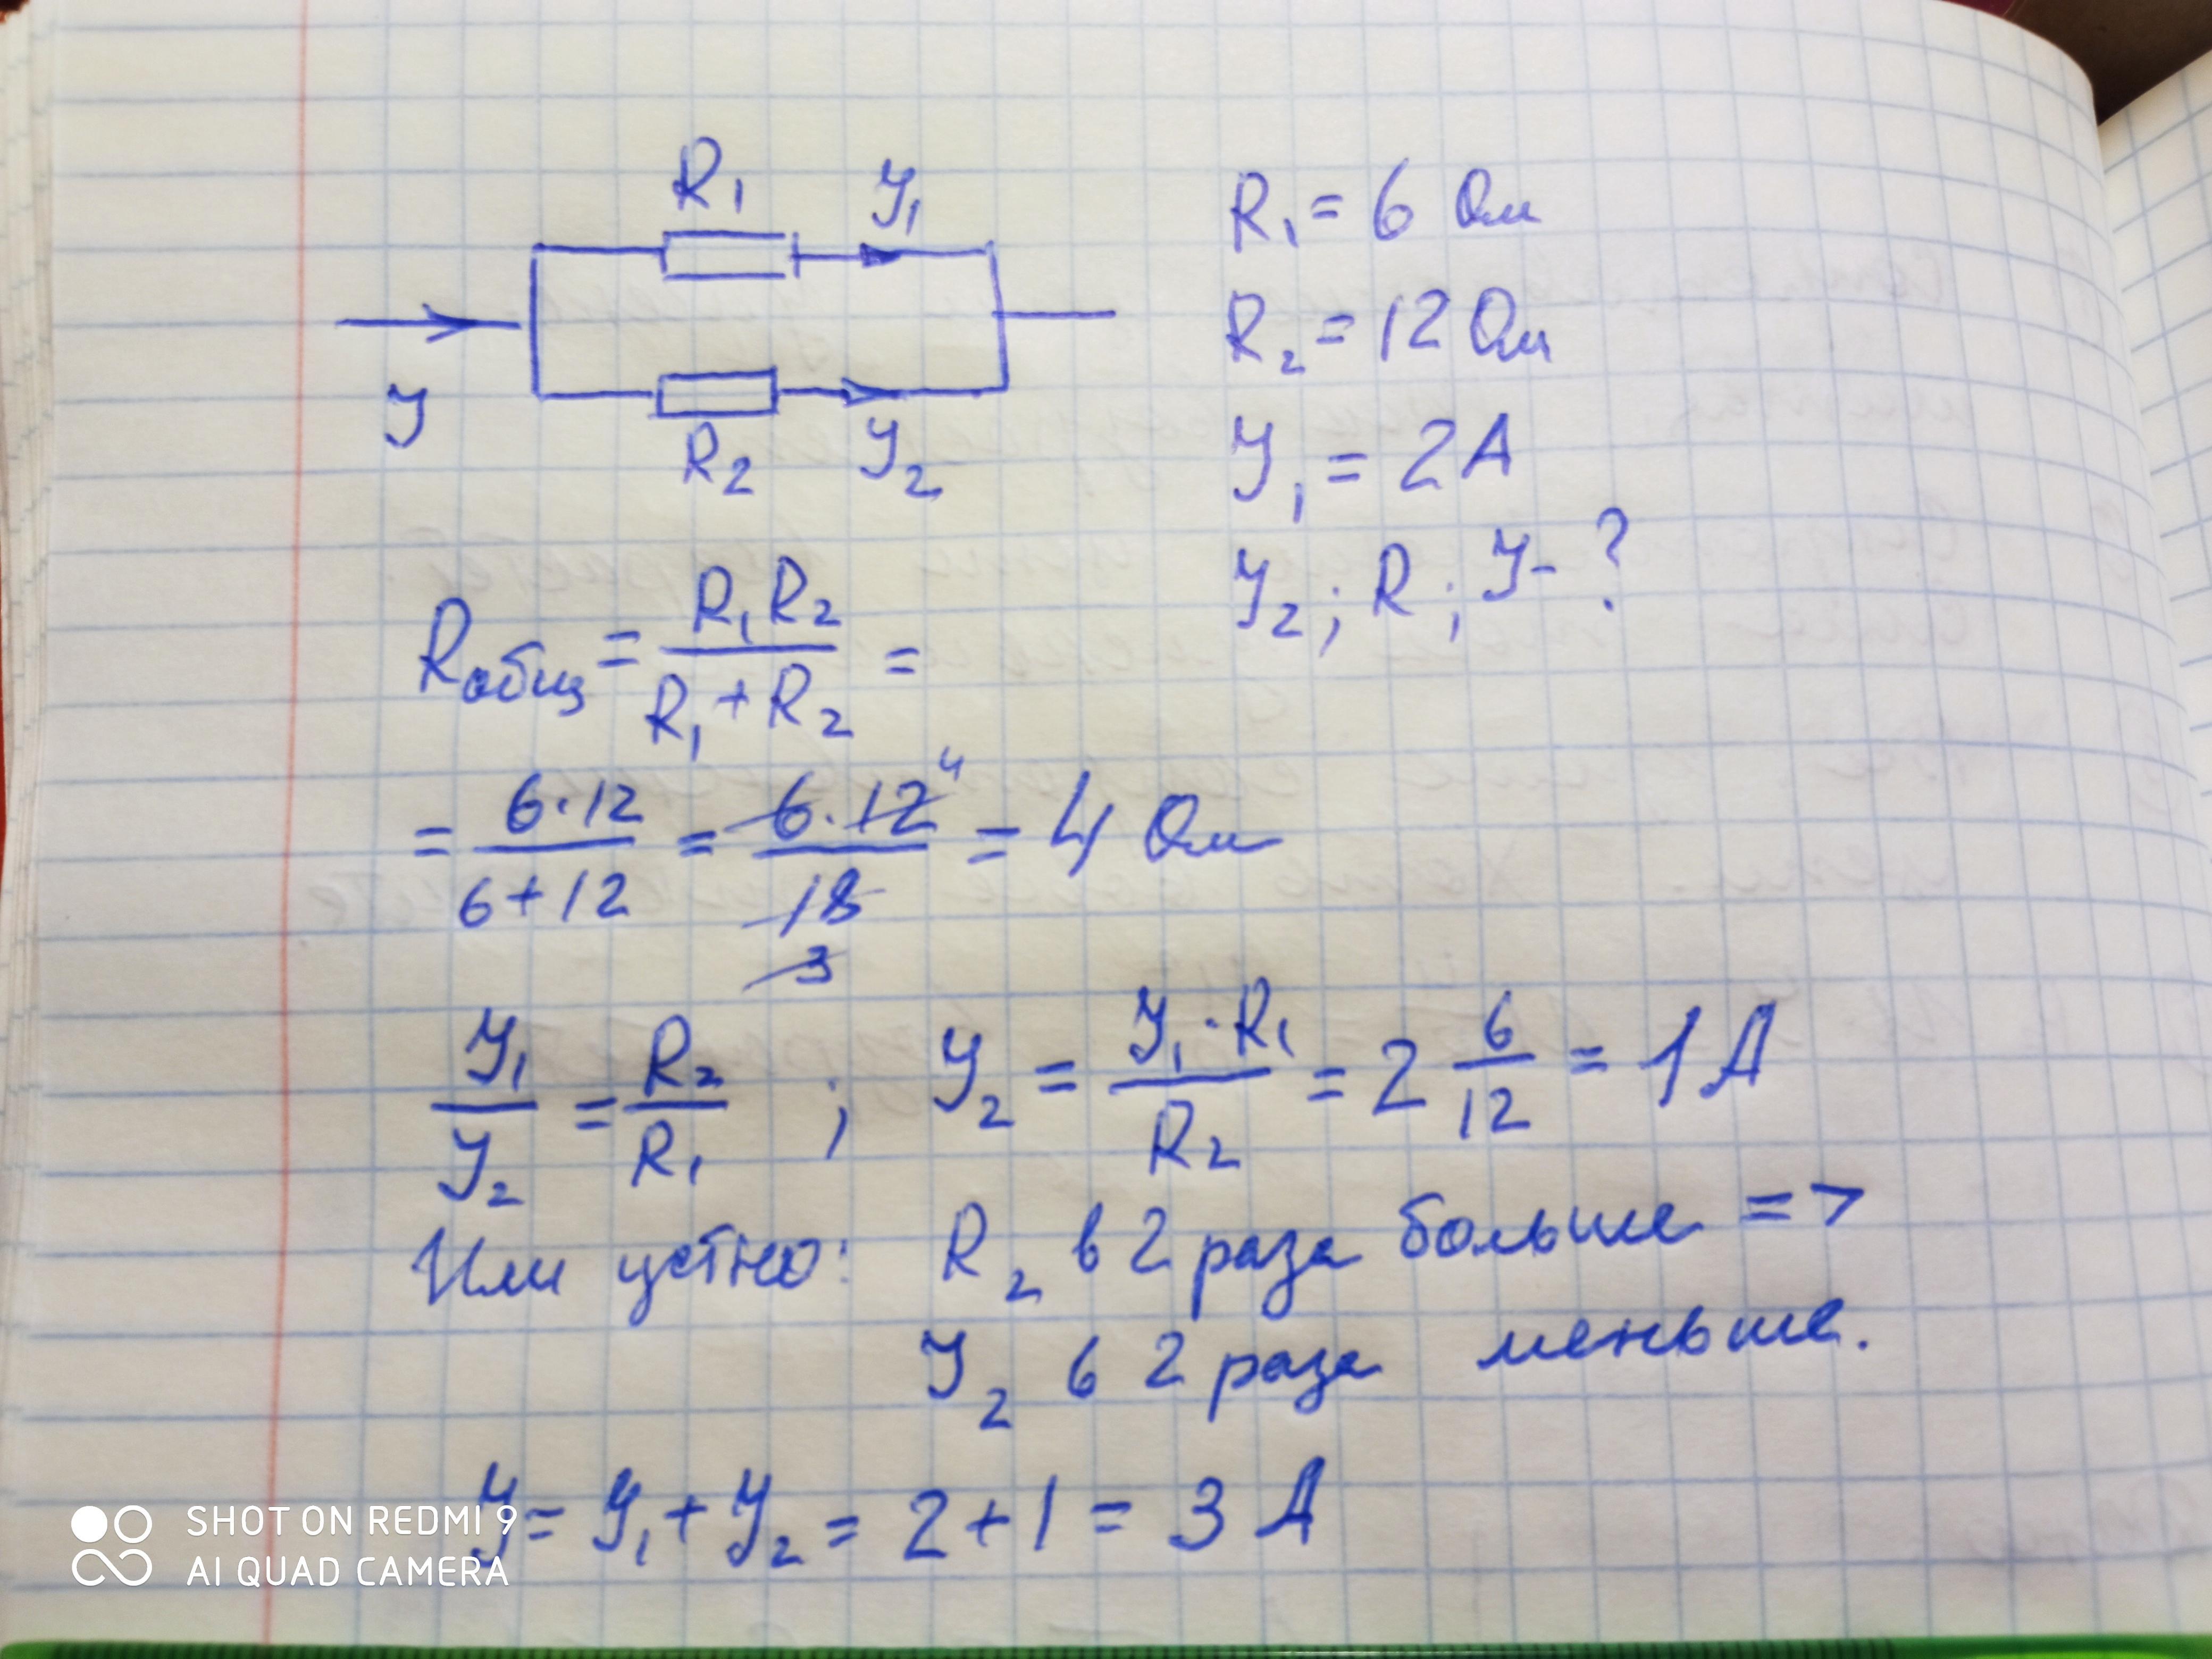 R₁ У₁
У
R₂ У₂
R₁ = 6 Ом
R₂ = 12 Ом
У₁ = 2А
У₂ ; R ; У - ?
Rобщ = R₁R₂ / R₁ + R₂ =
= 6·12 / 6+12 = 6·12 4 / 18 3 = 4 Ом
У₁ / У₂ = R₂ / R₁ ; У₂ = У₁·R₁ / R₂ = 2 6/12 = 1А
Или устно: R₂ в 2 раза больше =>
У₂ в 2 раза меньше.
У = У₁ + У₂ = 2 + 1 = 3 А
SHOT ON REDMI 9
AI QUAD CAMERA